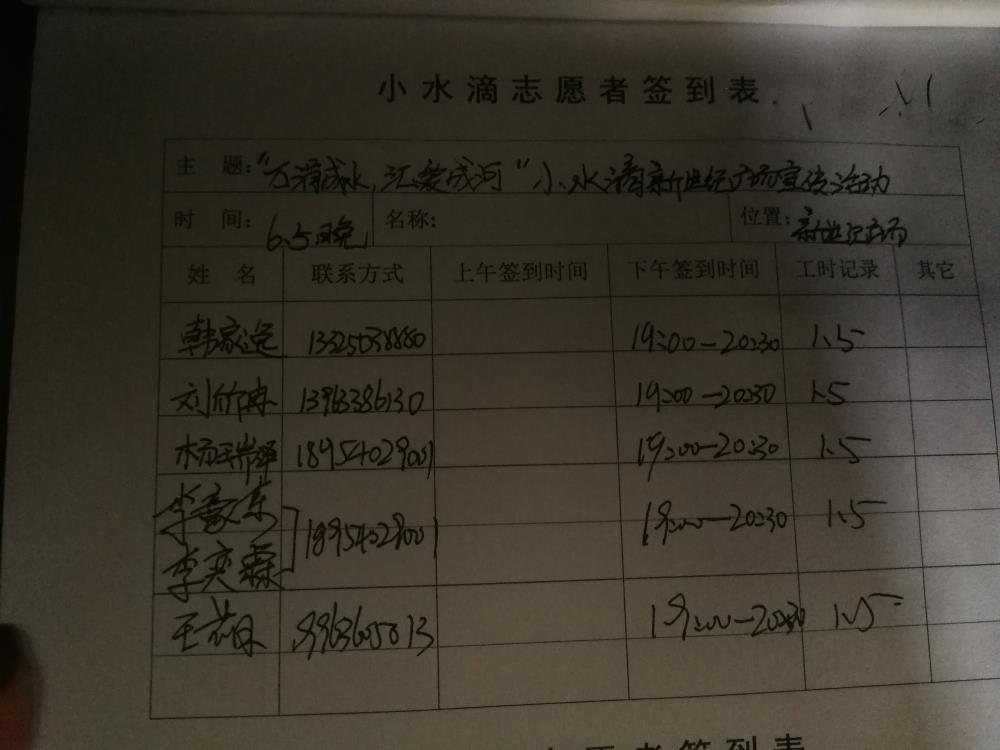 小水滴志愿者签到表
主 题：“万滴成水，汇爱成河”小水滴新世纪广场宣传活动
时 间：6.5晚 名称： 位置：新世纪广场
姓 名 联系方式 上午签到时间 下午签到时间 工时记录 其它
韩家逸 13325038880 19:00-20:30 1.5
刘欣冉 13963386130 19:00-20:30 1.5
杨瑞 18954029001 19:00-20:30 1.5
李家东
18954029001 19:00-20:30 1.5
李奕霖
王 19:00-20:30 1.5
小水滴志愿者签到表